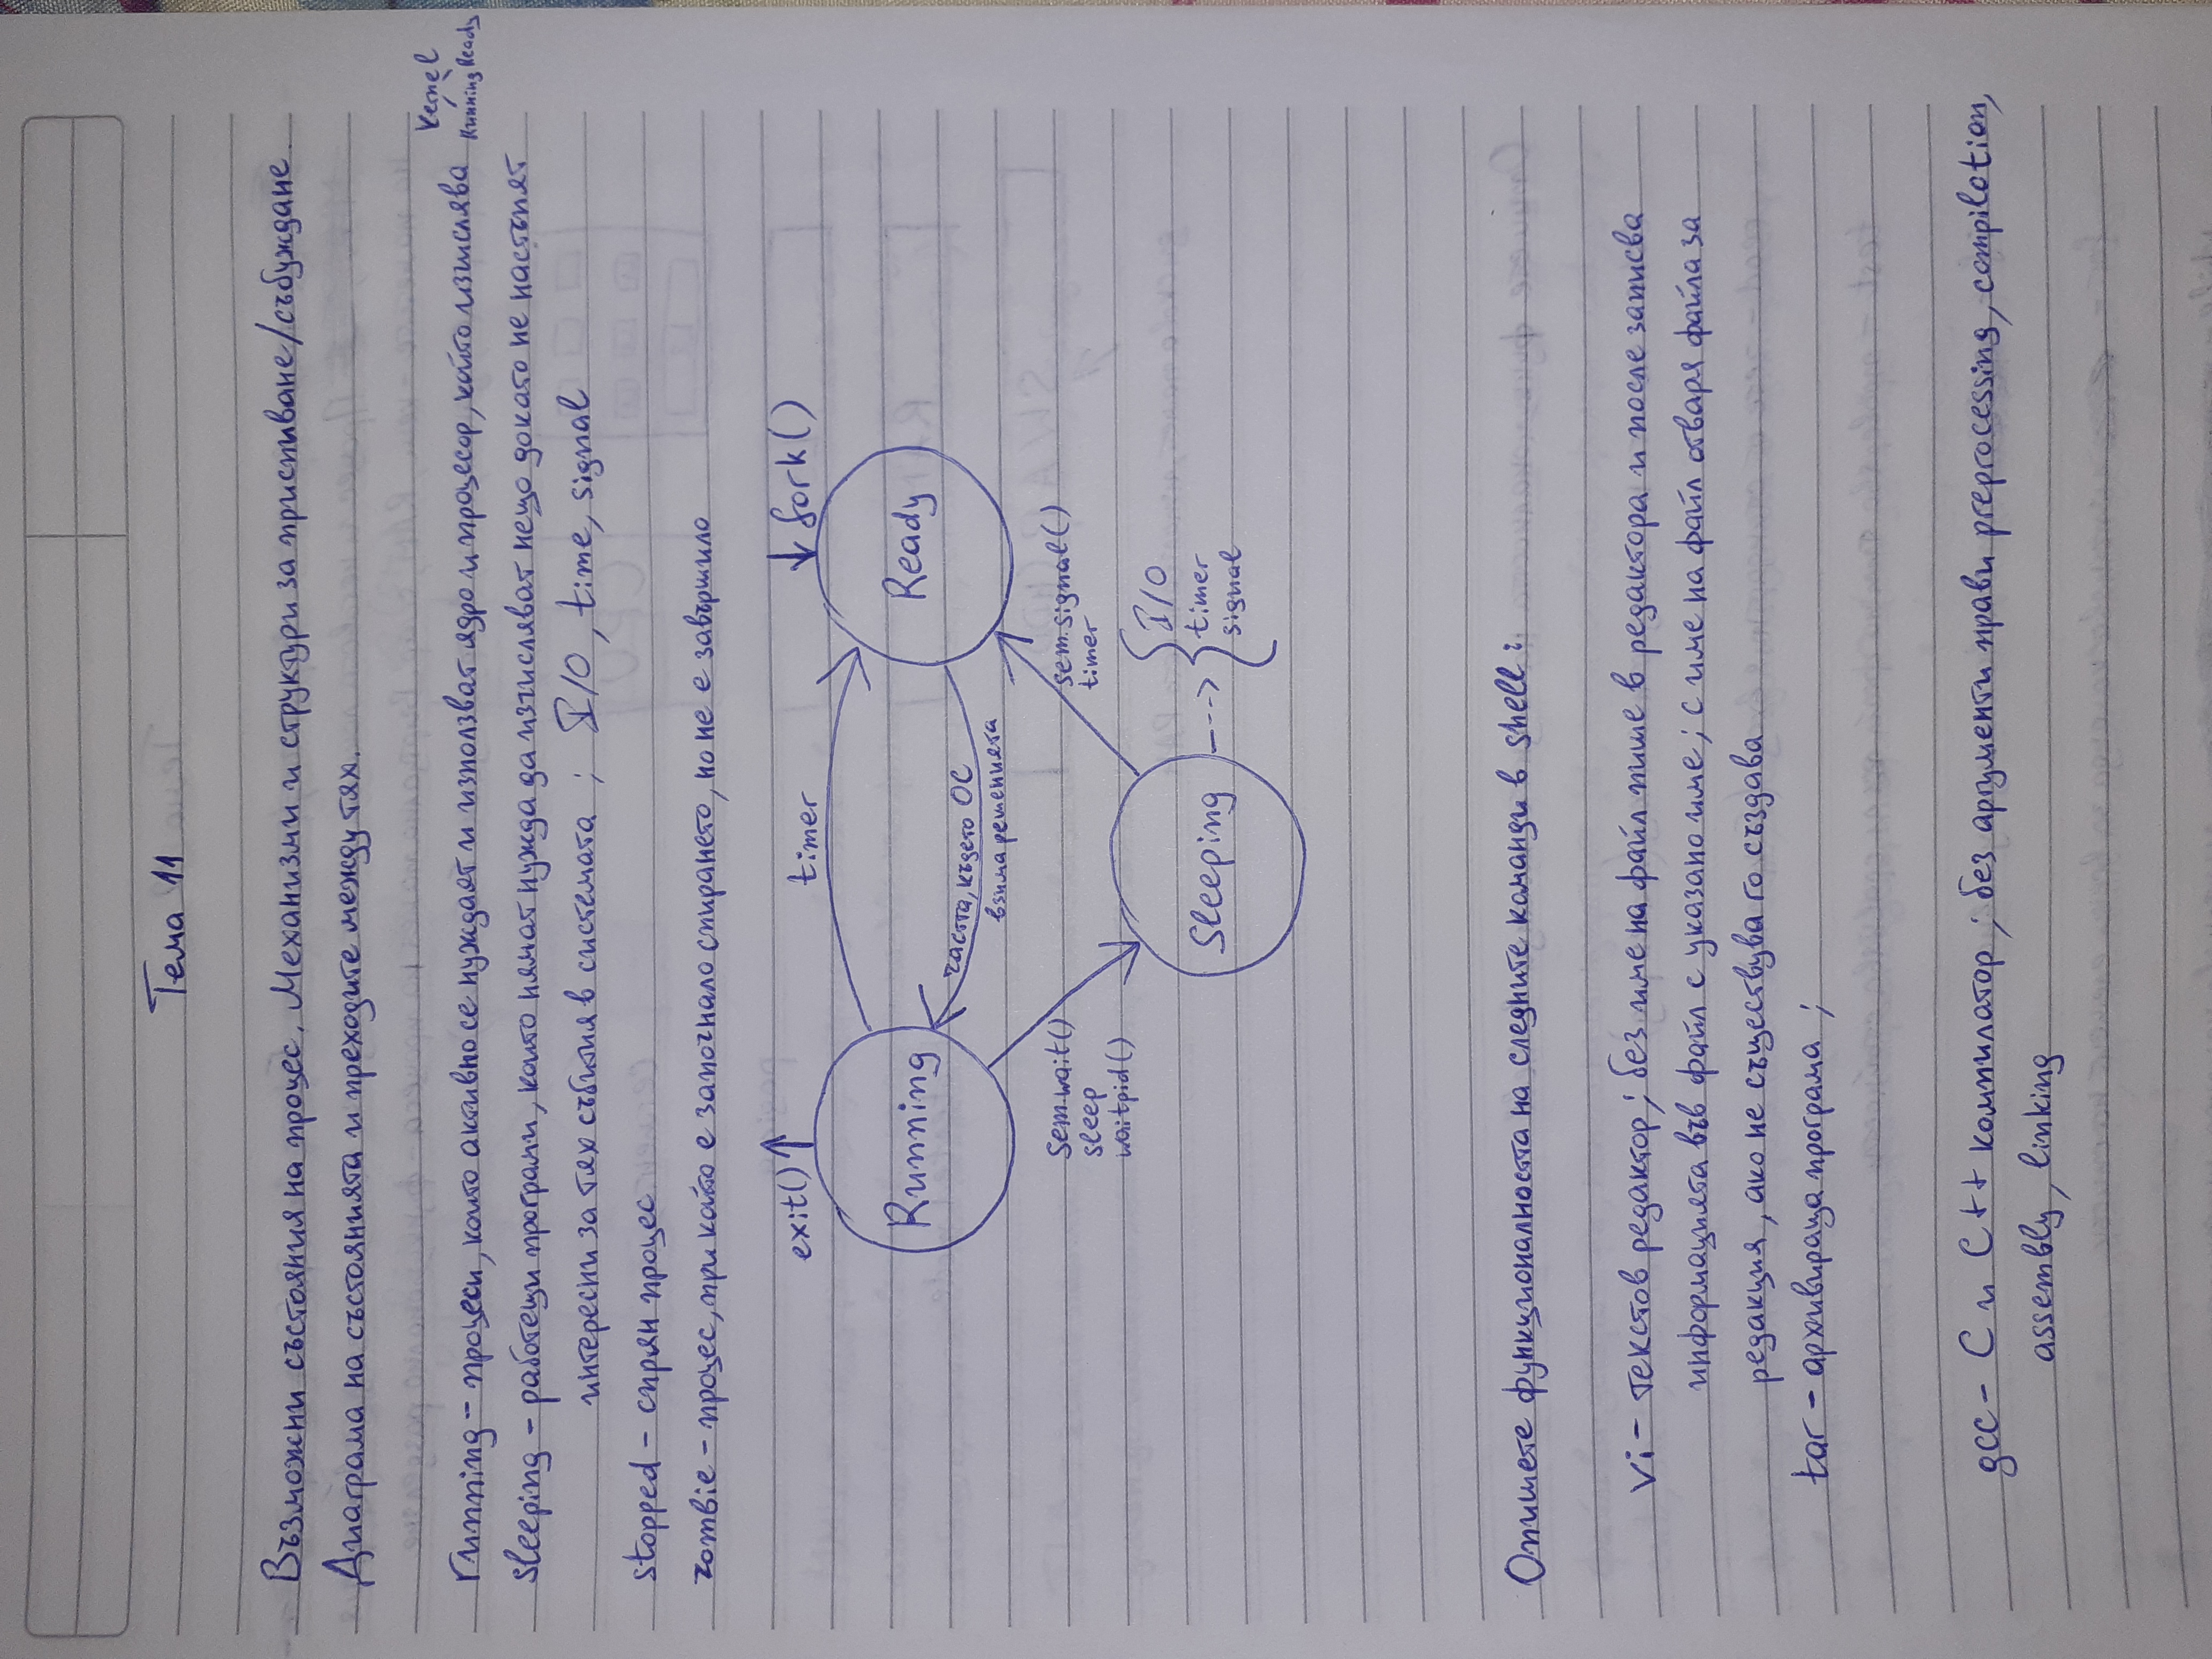 Тема 11
Възможни състояния на процес. Механизми и структури за приспиване/събуждане.
Диаграма на състоянията и преходите между тях.
Kernel
Running Ready
running – процеси, които активно се нуждаят и използват ядро и процесор, който изчислява
sleeping – работещи програми, които нямат нужда да изчисляват нещо докато не настъпят
интересни за тях събития в системата ; I/O, time, signal
stopped – спрян процес
zombie – процес, при който е започнало спирането, но не е завършило
exit()
timer
fork()
Running
Ready
частта, където ОС
взима решенията
sem.wait()
sleep
waitpid()
sem.signal()
timer
Sleeping
I/O
timer
signal
Опишете функционалността на следните команди в shell:
vi – текстов редактор; без име на файл пише в редактора и после записва
информацията във файл с указано име; с име на файл отваря файла за
редакция, ако не съществува го създава
tar – архивираща програма ;
gcc – C и C++ компилатор ; без аргументи прави preprocessing, compilation,
assembly, linking